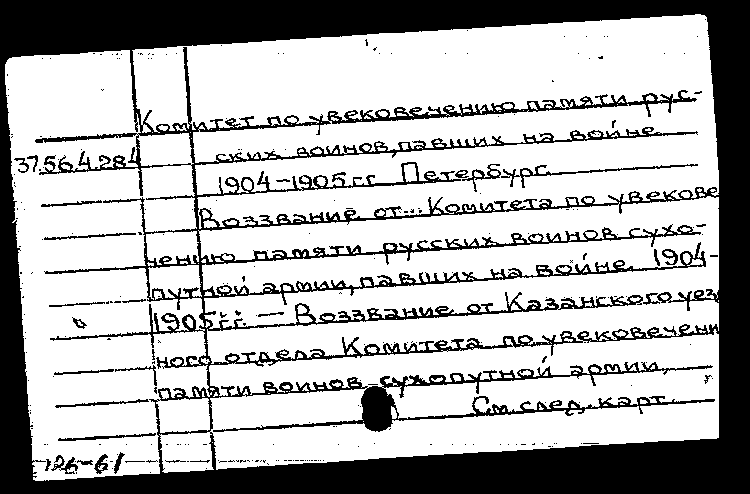 Комитет по увековечению памяти рус-
37.56.4.284 ских воинов, павших на войне
1904-1905 г.г. Петербург.
Воззвание от... Комитета по увекове
чению памяти русских воинов сухо-
путной армии, павших на войне 1904-
1905 г.г. — Воззвание от Казанского уез
ного отдела Комитета по увековечени
памяти воинов сухопутной армии,
См. след. карт.
126-61